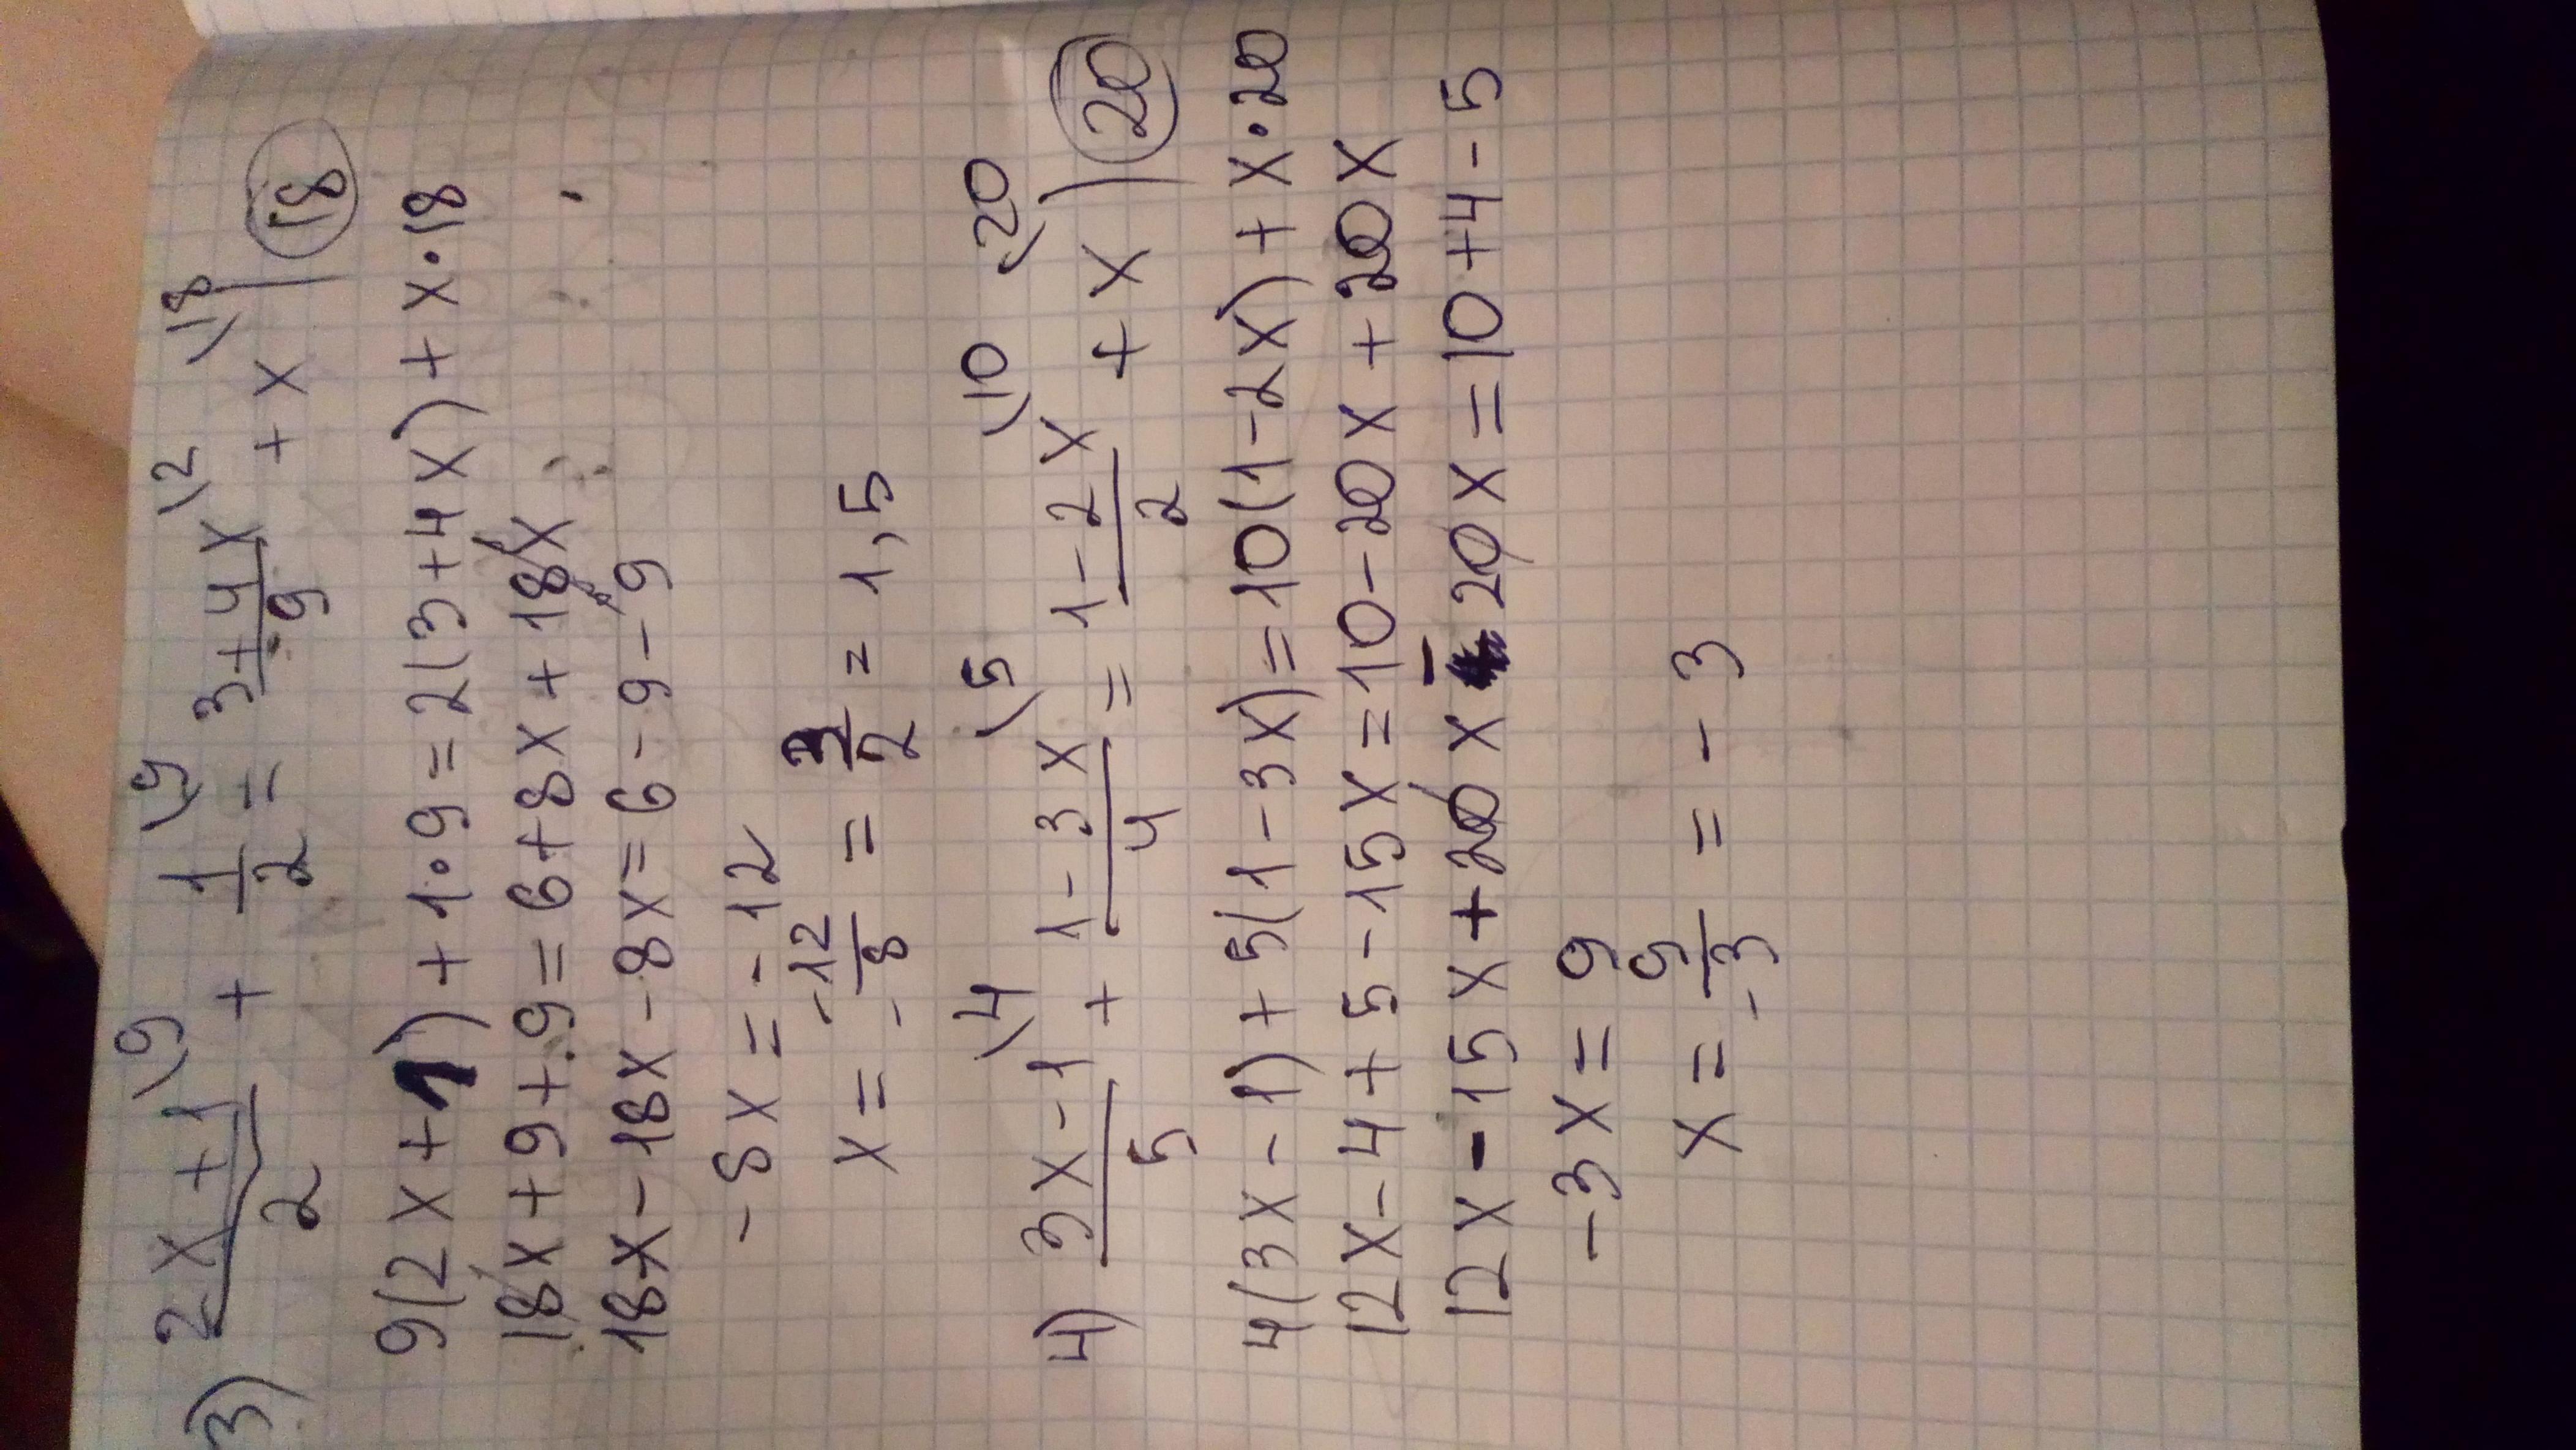 3) (2x+1)/2 \9 + 1/2 \9 = (3+4x)/9 \2 + x \18 | 18
9(2x+1)+1·9=2(3+4x)+x·18
18x+9+9=6+8x+18x
18x-18x-8x=6-9-9
-8x=-12
x=-12/-8=3/2=1,5
4) (3x-1)/5 \4 + (1-3x)/4 \5 = (1-2x)/2 \10 + x \20 | 20
4(3x-1)+5(1-3x)=10(1-2x)+x·20
12x-4+5-15x=10-20x+20x
12x-15x+20x-20x=10+4-5
-3x=9
x=9/-3=-3